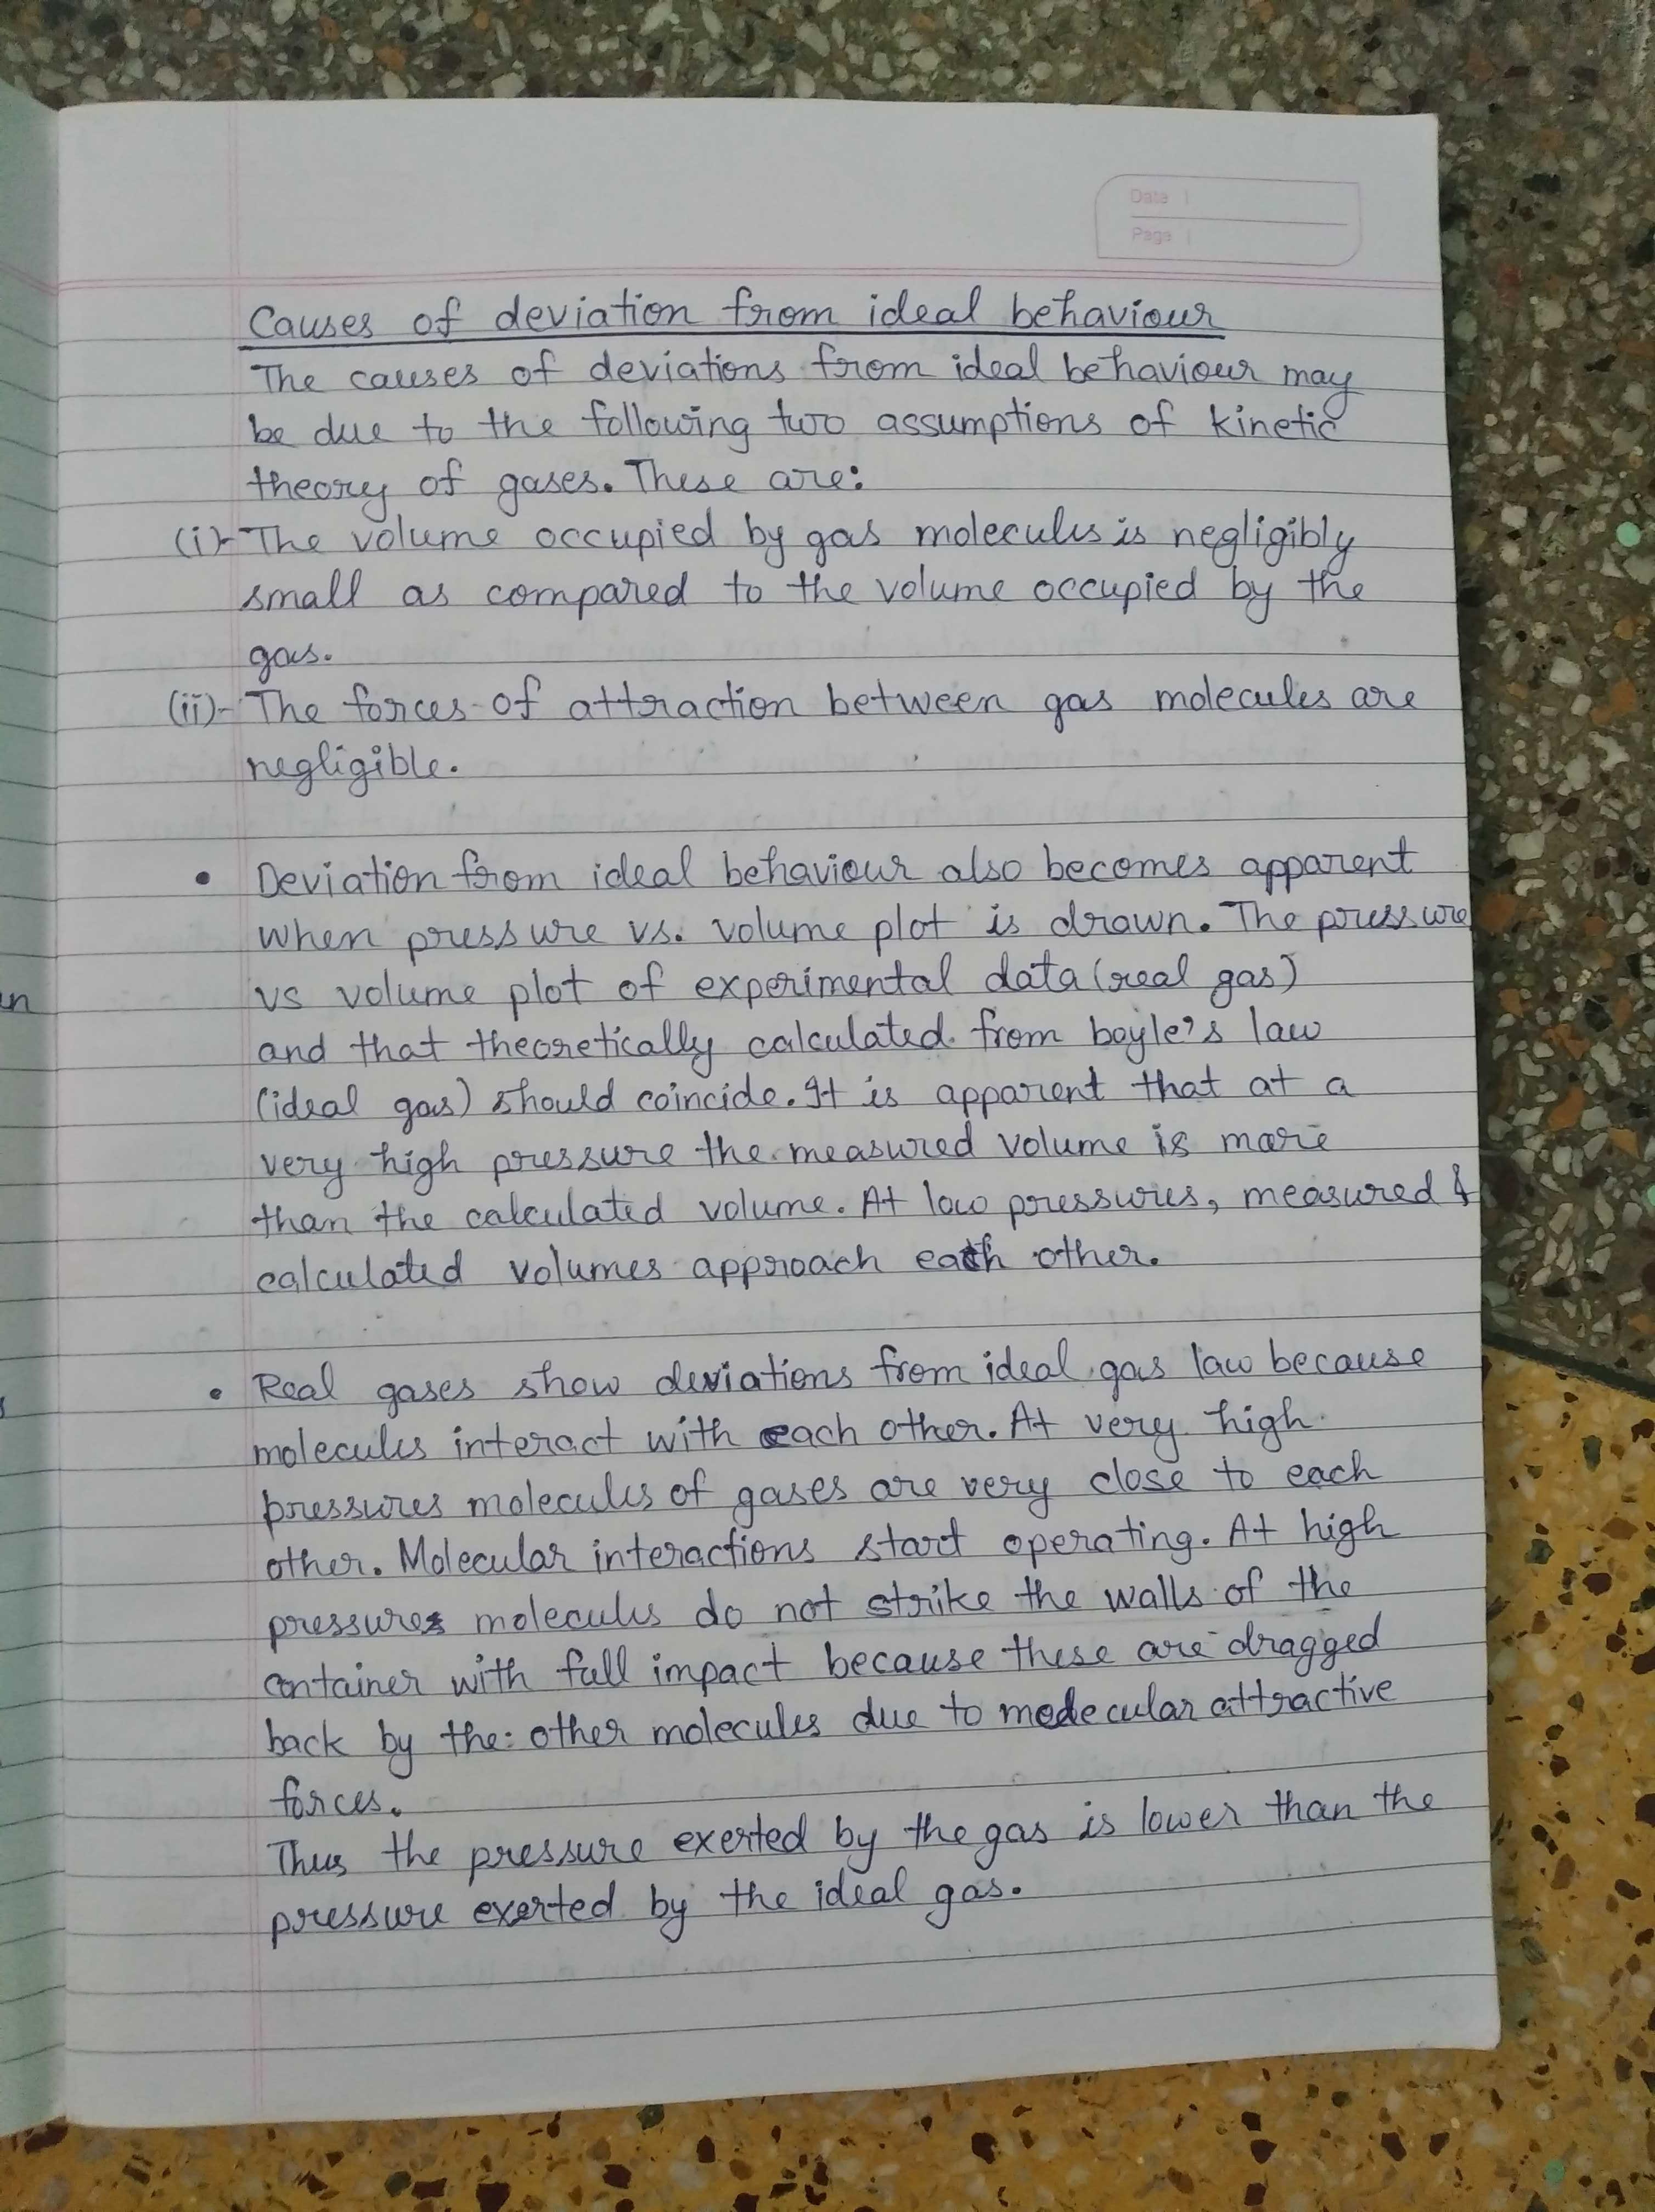 Date |
Page |
Causes of deviation from ideal behaviour
The causes of deviations from ideal behaviour may
be due to the following two assumptions of kinetic
theory of gases. These are:
(i)- The volume occupied by gas molecules is negligibly
small as compared to the volume occupied by the
gas.
(ii)- The forces of attraction between gas molecules are
negligible.
• Deviation from ideal behaviour also becomes apparent
when pressure vs. volume plot is drawn. The pressure
vs volume plot of experimental data (real gas)
and that theoretically calculated from boyle's law
(ideal gas) should coincide. It is apparent that at a
very high pressure the measured volume is more
than the calculated volume. At low pressures, measured &
calculated volumes approach each other.
• Real gases show deviations from ideal gas law because
molecules interact with each other. At very high
pressures molecules of gases are very close to each
other. Molecular interactions start operating. At high
pressures molecules do not strike the walls of the
container with full impact because these are dragged
back by the other molecules due to molecular attractive
forces.
Thus the pressure exerted by the gas is lower than the
pressure exerted by the ideal gas.